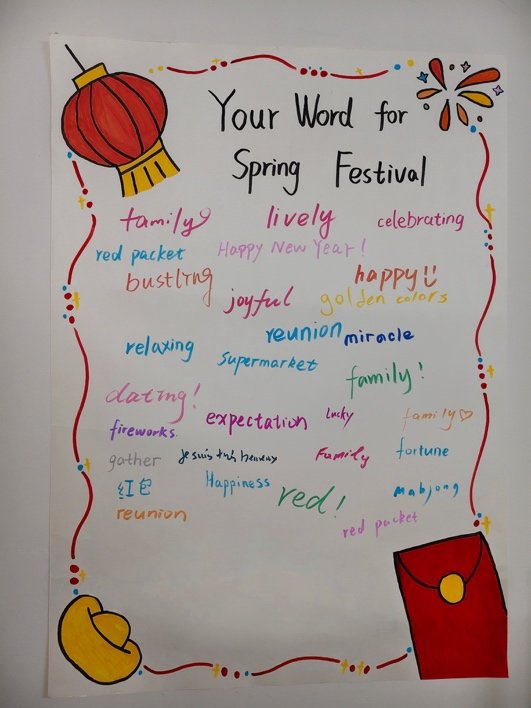 Your Word for
Spring Festival
family lively celebrating
red packet Happy New Year!
bustling happy
joyful golden colors
relaxing reunion miracle
supermarket family!
dating!
expectation lucky family
fireworks.
gather Je suis Family fortune
红包 Happiness red! mahjong
reunion red packet